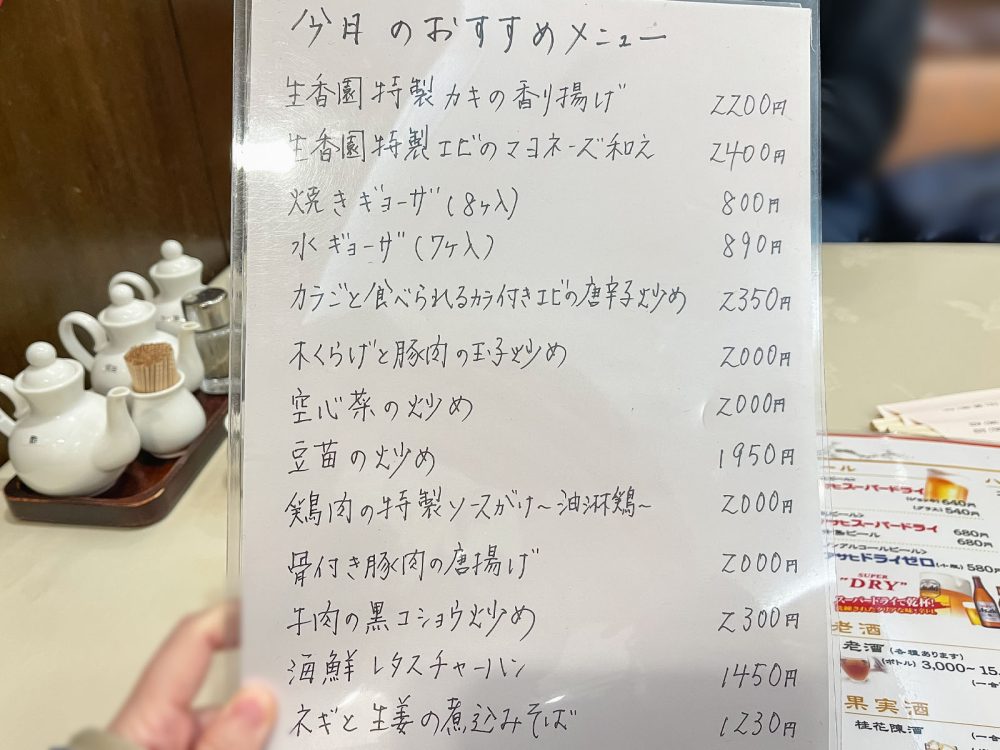 今月のおすすめメニュー
生香園特製カキの香り揚げ 2200円
生香園特製エビのマヨネーズ和え 2400円
焼きギョーザ(8ヶ入) 800円
水ギョーザ(7ヶ入) 890円
カラごと食べられるカラ付きエビの唐辛子炒め 2350円
木くらげと豚肉の玉子炒め 2000円
空心菜の炒め 2000円
豆苗の炒め 1950円
鶏肉の特製ソースがけ～油淋鶏～ 2000円
骨付き豚肉の唐揚げ 2000円
牛肉の黒コショウ炒め 2300円
海鮮レタスチャーハン 1450円
ネギと生姜の煮込みそば 1230円
ール
スーパードライ
640円
(グラス) 540円
サヒスーパードライ 680円
ビール 680円
ンアルコールビール>
アサヒドライゼロ(小瓶) 580円
SUPER
"DRY"
スーパードライで乾杯!
老酒
老酒(各種あります)
(ボトル) 3,000～15,
果実酒
桂花陳酒